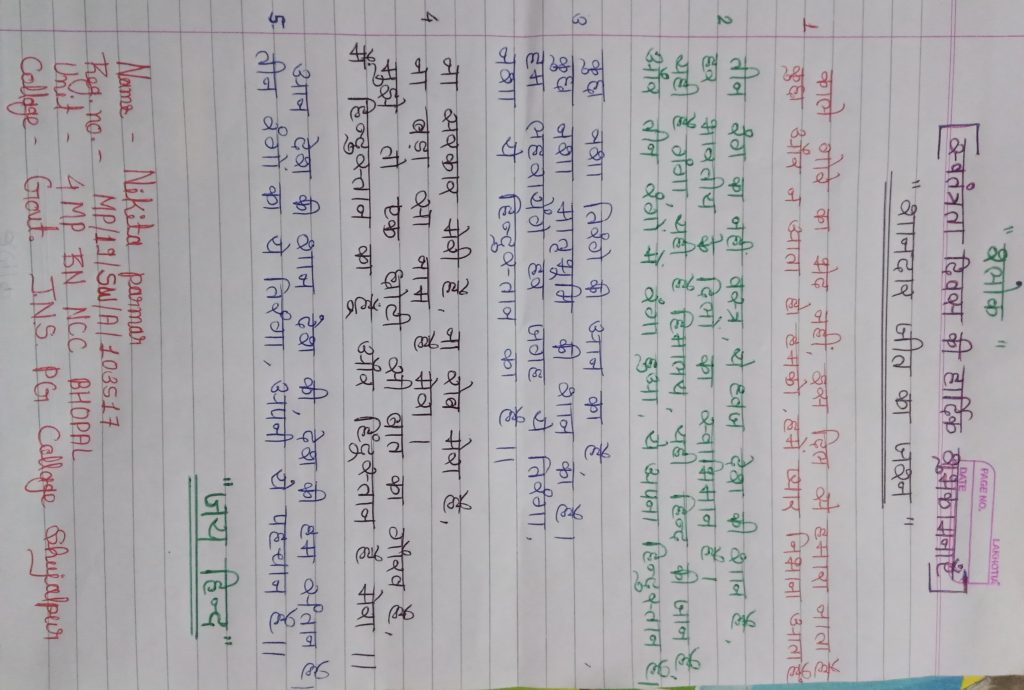 "श्लोक"
PAGE NO.
DATE
LAKHOTIA
स्वतंत्रता दिवस की हार्दिक शुभकामनाएँ
"शानदार जीत का जश्न"
1 काले गोरे का भेद नहीं, इस दिल से हमारा नाता है
कुछ और न आता हो हमको, हमें प्यार निभाना आता है
2 तीन रंग का नहीं वस्त्र, ये ध्वज देश की शान है,
हर भारतीय के दिलों का स्वाभिमान है।
यही है गंगा, यही है हिमालय, यही हिन्द की जान है
और तीन रंगों में रंगा हुआ, ये अपना हिन्दुस्तान है।
3 कुछ नशा तिरंगे की आन का है,
कुछ नशा मातृभूमि की शान का है।
हम लहरायेंगे हर जगह ये तिरंगा,
नशा ये हिन्दुस्तान का है।।
4 ना सरकार मेरी है, ना रौब मेरा है,
ना बड़ा सा नाम है मेरा।
मुझे तो एक छोटी सी बात का गौरव है,
मैं हिन्दुस्तान का हूँ और हिंदुस्तान है मेरा।।
5 आन देश की शान देश की, देश की हम संतान है।
तीन रंगों का ये तिरंगा, अपनी ये पहचान है।।
"जय हिन्द"
Name - Nikita parmar
Reg. no. - MP/19/SW/A/103577
Unit - 4 MP BN NCC BHOPAL
Collage - Govt. JNS PG Collage Shujalpur